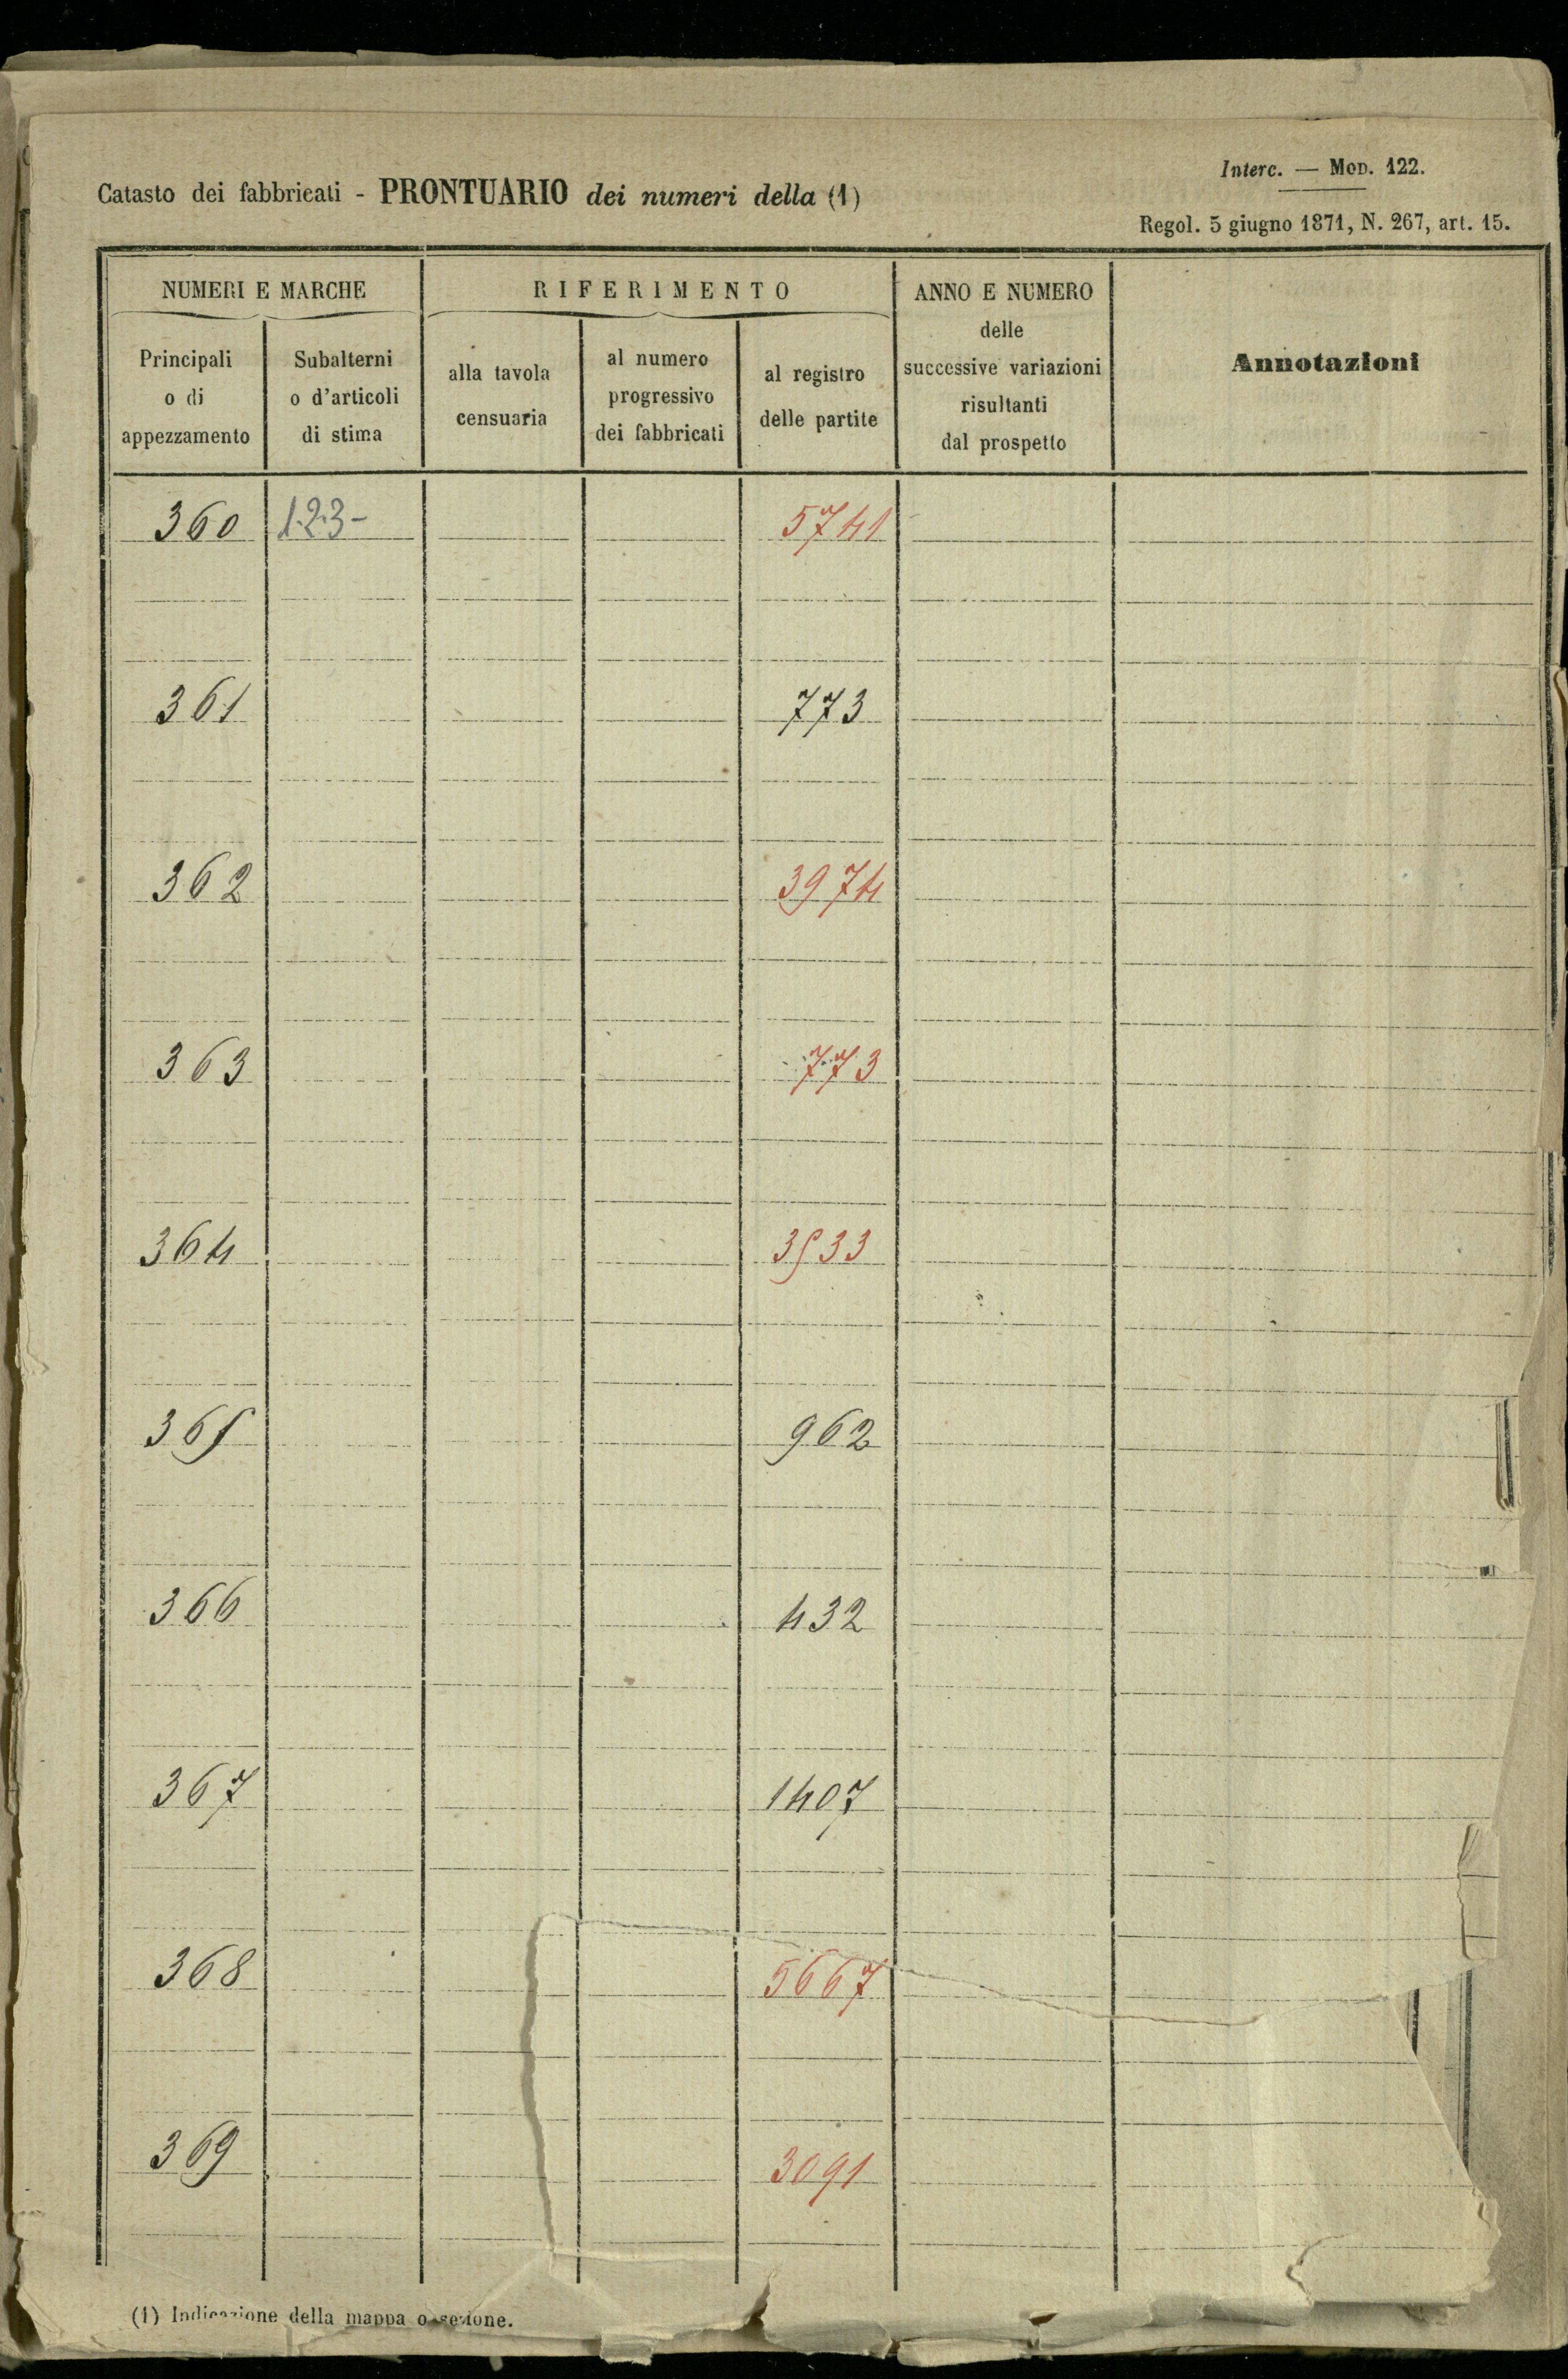 Interc. — Mod. 122.
Catasto dei fabbricati - PRONTUARIO dei numeri della (1)
Regol. 5 giugno 1871, N. 267, art. 15.
NUMERI E MARCHE
RIFERIMENTO
ANNO E NUMERO
delle
successive variazioni
risultanti
dal prospetto
Annotazioni
Principali
o di
appezzamento
Subalterni
o d'articoli
di stima
alla tavola
censuaria
al numero
progressivo
dei fabbricati
al registro
delle partite
360 1.2.3- 5741
361 773
362 3974
363 773
364 3533
365 962
366 432
367 1407
368 5667
369 3091
(1) Indicazione della mappa o sezione.